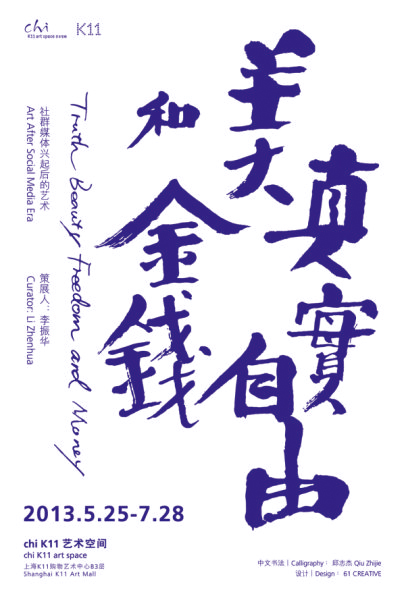 chi
K11 art space
K11
真實
美
自由
和
金錢
Truth Beauty Freedom and Money
社群媒体兴起后的艺术
Art After Social Media Era
策展人：李振华
Curator: Li Zhenhua
2013.5.25-7.28
chi K11 艺术空间
chi K11 art space
上海K11购物艺术中心B3层
Shanghai K11 Art Mall
中文书法｜Calligraphy： 邱志杰 Qiu Zhijie
设计｜Design： 61 CREATIVE